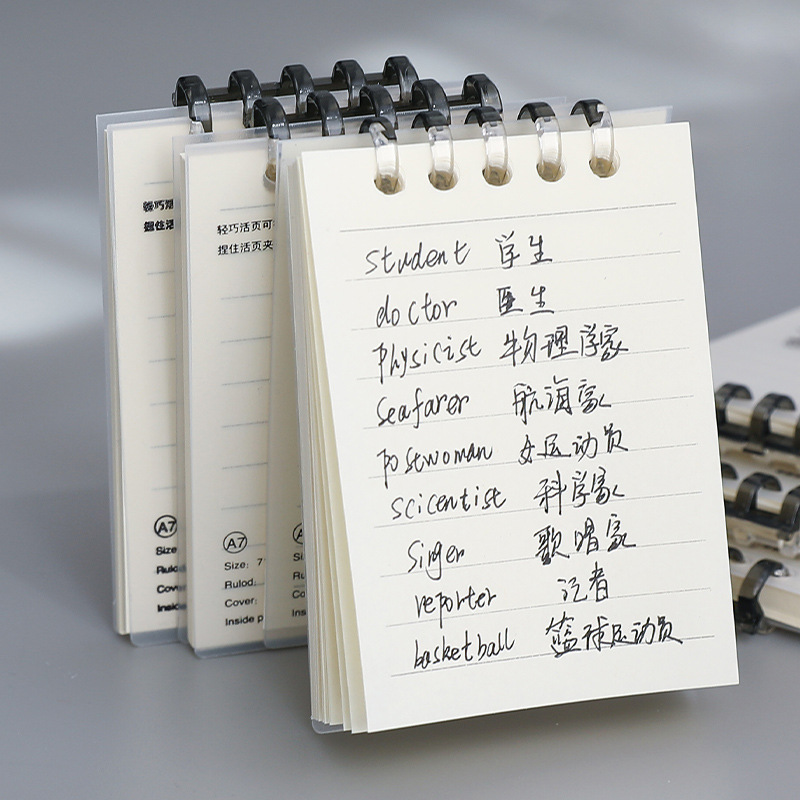 student 学生
doctor 医生
physicist 物理学家
seafarer 航海家
postwoman 女运动员
scicentist 科学家
Singer 歌唱家
reporter 记者
basketball 篮球运动员
轻巧活页可
捏住活页夹
A7
Size: 7
Rulod:
Cover:
Inside p
轻巧活
捏住活
A7
Size
Rulod
Cove
Inside